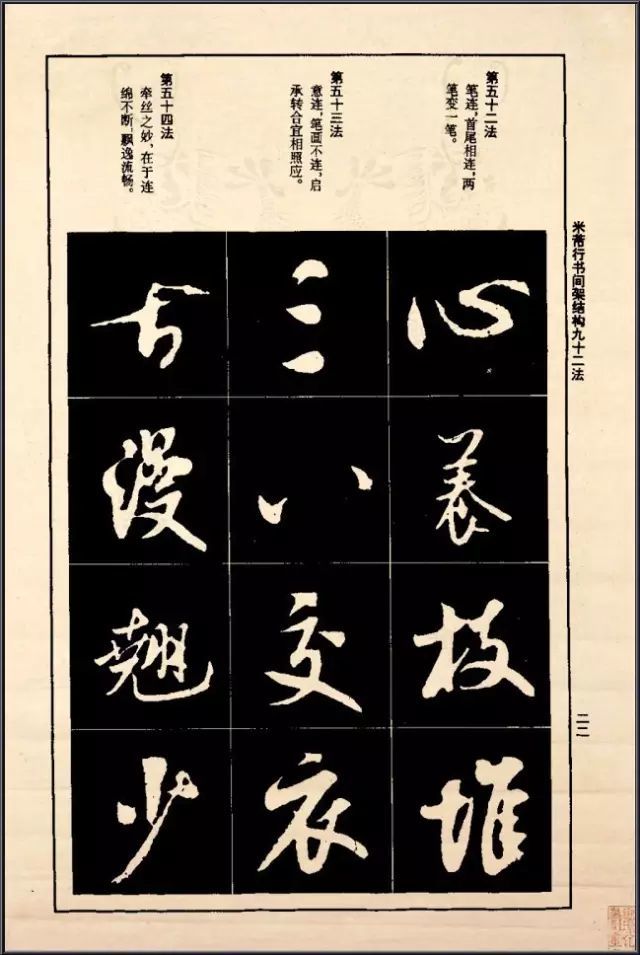 米芾行书间架结构九十二法
二二
第五十二法
笔连，首尾相连，两
笔变一笔。
第五十三法
意连，笔画不连，启
承转合宜相照应。
第五十四法
牵丝之妙，在于连
绵不断，飘逸流畅。
心
養
枝
堆
三
八
交
衣
漫
翹
少